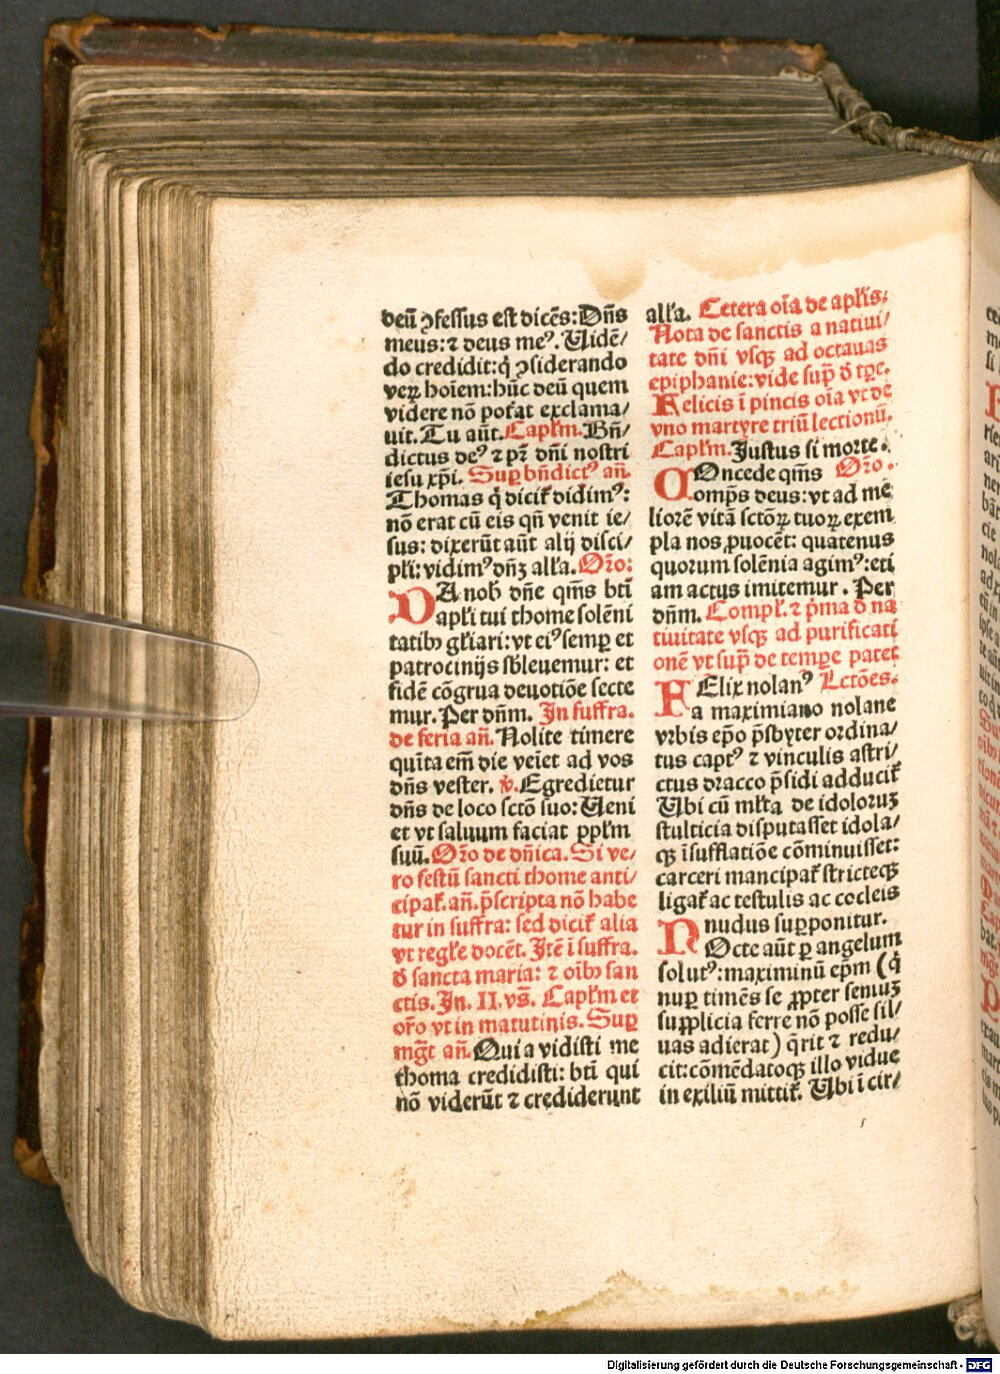 deū ꝯfessus est dicēs: Dn̄s
meus: ⁊ deus meꝰ. Uidē/
do credidit: q̇ ꝯsiderando
veꝝ hoīem: hūc deū quem
videre nō potat̄ exclama/
uit. Tu aūt. Caplm̄. Bn̄/
dictus deꝰ ⁊ pr̄ dn̄i nostri
iesu xp̄i. Suꝑ bn̄dictꝰ an̄.
Thomas q̇ dicit̄ didimꝰ:
nō erat cū eis qn̄ venit ie/
sus: dixerūt aūt alij disci/
pli: vidimꝰ dn̄ꝫ all'a. Oro:
DA nob̄ dn̄e qm̄s bt̄i
apl'i tui thome solēni
tatibꝰ gl'iari: vt eiꝰ semꝑ et
patrocinijs sb̄leuemur: et
fidē cōgrua deuotiōe secte
mur. Per dn̄m. In suffra.
de feria an̄. Nolite timere
quīta em̄ die veīet ad vos
dn̄s vester. v̇. Egredietur
dn̄s de loco sctō suo: Ueni
et vt saluum faciat ppl'm
suū. Or̄o de dn̄ica. Si ve/
ro festū sancti thome anti/
cipat̄. an̄. p̄scripta nō habe
tur in suffra: sed dicit̄ alia
vt regl'e docēt. Itē ī suffra.
d̄ sancta maria: ⁊ oībꝰ san
ctis. In. II. vs̄. Capl'm et
or̄o vt in matutinis. Suꝑ
mḡt an̄. Quia vidisti me
thoma credidisti: bt̄i qui
nō viderūt ⁊ crediderunt
all'a. Cetera oīa de apl'is.
Nota de sanctis a natiui/
tate dn̄i vsqꝫ ad octauas
epiphanie: vide sup̄ d̄ tp̄e.
Felicis ī pincis oīa vt de
vno martyre triū lectionū.
Capl'm. Justus si morte.
COncede qm̄s Or̄o.
omp̄s deus: vt ad me
liorē vitā sctōꝝ tuoꝝ exem
pla nos ꝓuocēt: quatenus
quorum solēnia agimꝰ: eti
am actus imitemur. Per
dn̄m. Compl'. ⁊ ṗma d̄ na
tiuitate vsqꝫ ad purificati
onē vt sup̄ de tempe patet
FElix nolanꝰ Lctōes.
a maximiano nolane
vrbis ep̄o p̄sbyter ordina/
tus captꝰ ⁊ vinculis astri/
ctus dracco p̄sidi adducit̄
Ubi cū ml'ta de idoloruꝫ
stulticia disputasset idola/
qꝫ īsufflatiōe cōminuisset:
carceri mancipat̄ stricteqꝫ
ligat̄ ac testulis ac cocleis
nudus suꝑponitur.
NOcte aūt ꝑ angelum
solutꝰ: maximinū ep̄m (q̇
nuꝑ timēs se ꝓpter seniuꝫ
suꝑplicia ferre nō posse sil/
uas adierat) q̄rit ⁊ redu/
cit: cōmēdatoqꝫ illo vidue
in exiliū mittit̄. Ubi ī cir/
Digitalisierung gefördert durch die Deutsche Forschungsgemeinschaft - DFG